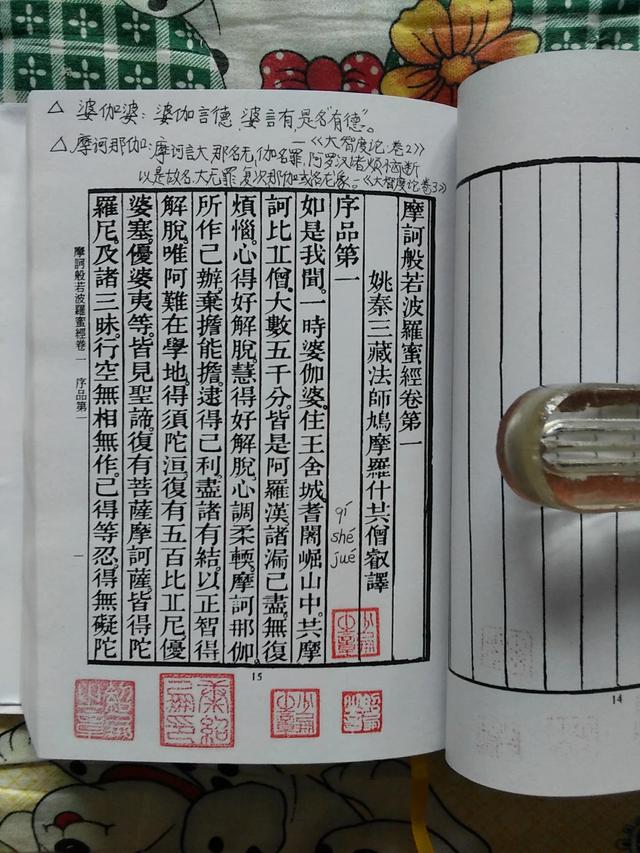 △ 婆伽婆：婆伽言德，婆言有，是名“有德”。
—《大智度论·卷2》
△ 摩诃那伽：摩诃言大，那名无，伽名罪，阿罗汉诸烦恼断
以是故名大无罪，复次那伽或名龙象。—《大智度论卷3》
摩訶般若波羅蜜經卷第一
姚秦三藏法師鳩摩羅什共僧叡譯
序品第一
qí shé jué
如是我聞。一時婆伽婆。住王舍城耆闍崛山中。共摩
訶比丘僧。大數五千分。皆是阿羅漢。諸漏已盡。無復
煩惱。心得好解脫。慧得好解脫。心調柔軟。摩訶那伽。
所作已辦。棄擔能擔。逮得己利。盡諸有結。以正智得
解脫。唯阿難在學地。得須陀洹。復有五百比丘尼。優
婆塞。優婆夷等。皆見聖諦。復有菩薩摩訶薩。皆得陀
羅尼。及諸三昧。行空無相無作。已得等忍。得無礙陀
摩訶般若波羅蜜經卷一 序品第一
一
15
14